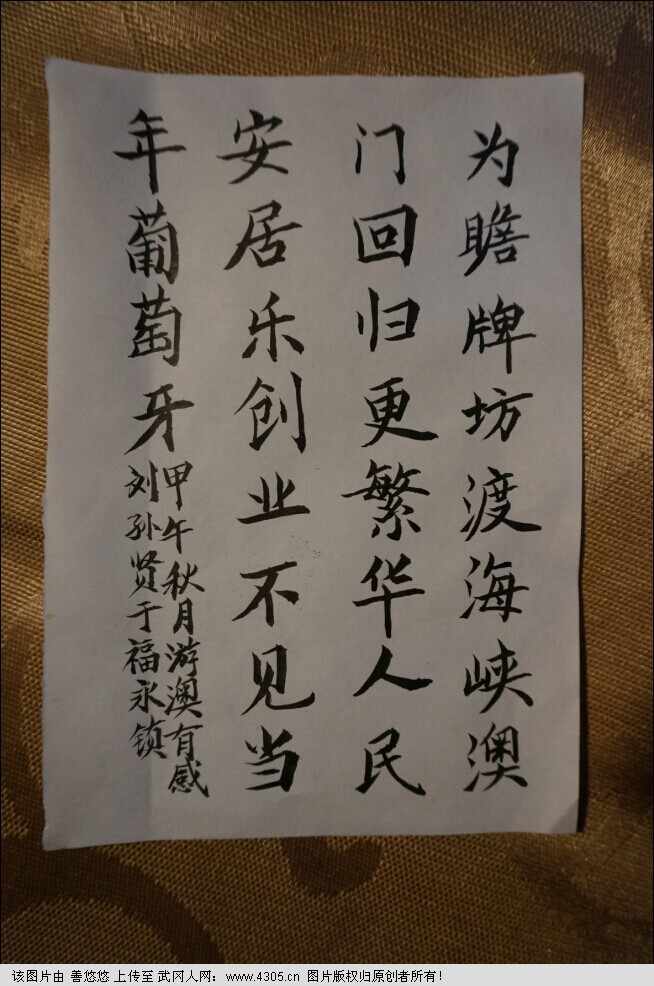 为瞻牌坊渡海峡澳
门回归更繁华人民
安居乐创业不见当
年葡萄牙
甲午秋月游澳有感
刘孙贤于福永镇
该图片由 善悠悠 上传至 武冈人网：www.4305.cn 图片版权归原创者所有！